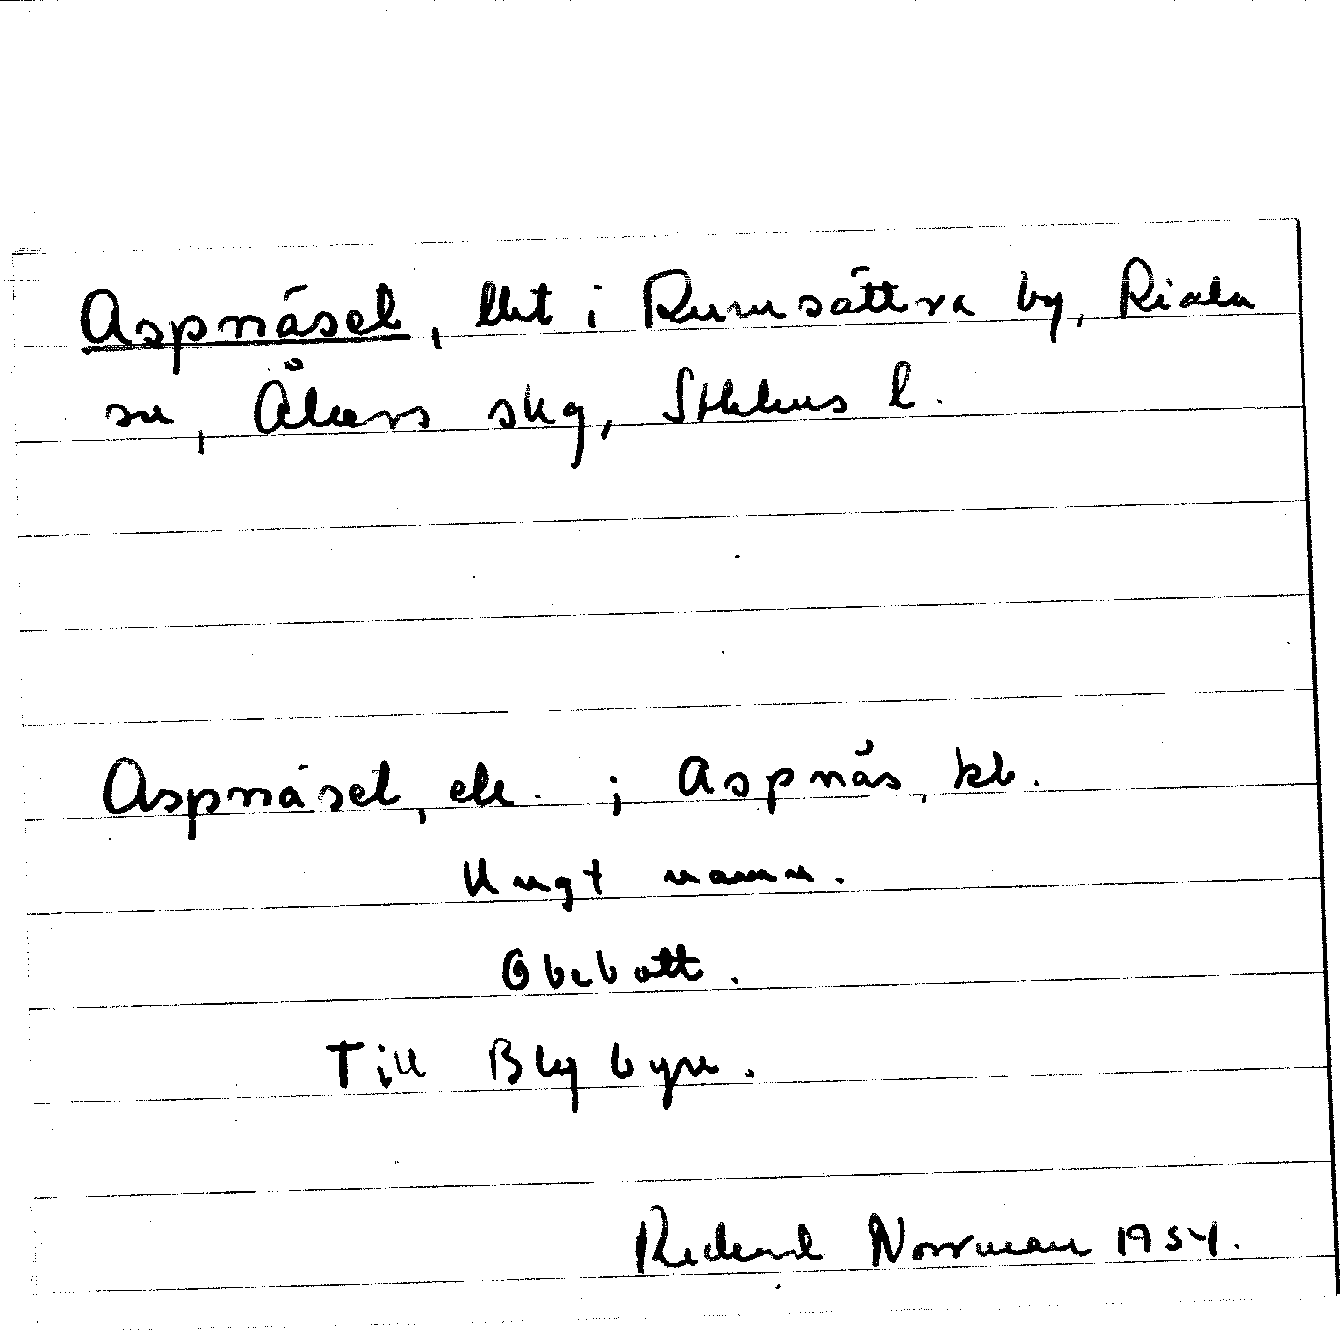 Aspnäset, lht i Rumsättra by, Riala
sn, Åkers skg, Sthlms l.
Aspnäset, ell. ; Aspnäs, kb.
Ungt namn.
Obebott.
Till Blybyn.
Rickard Norrman 1954.